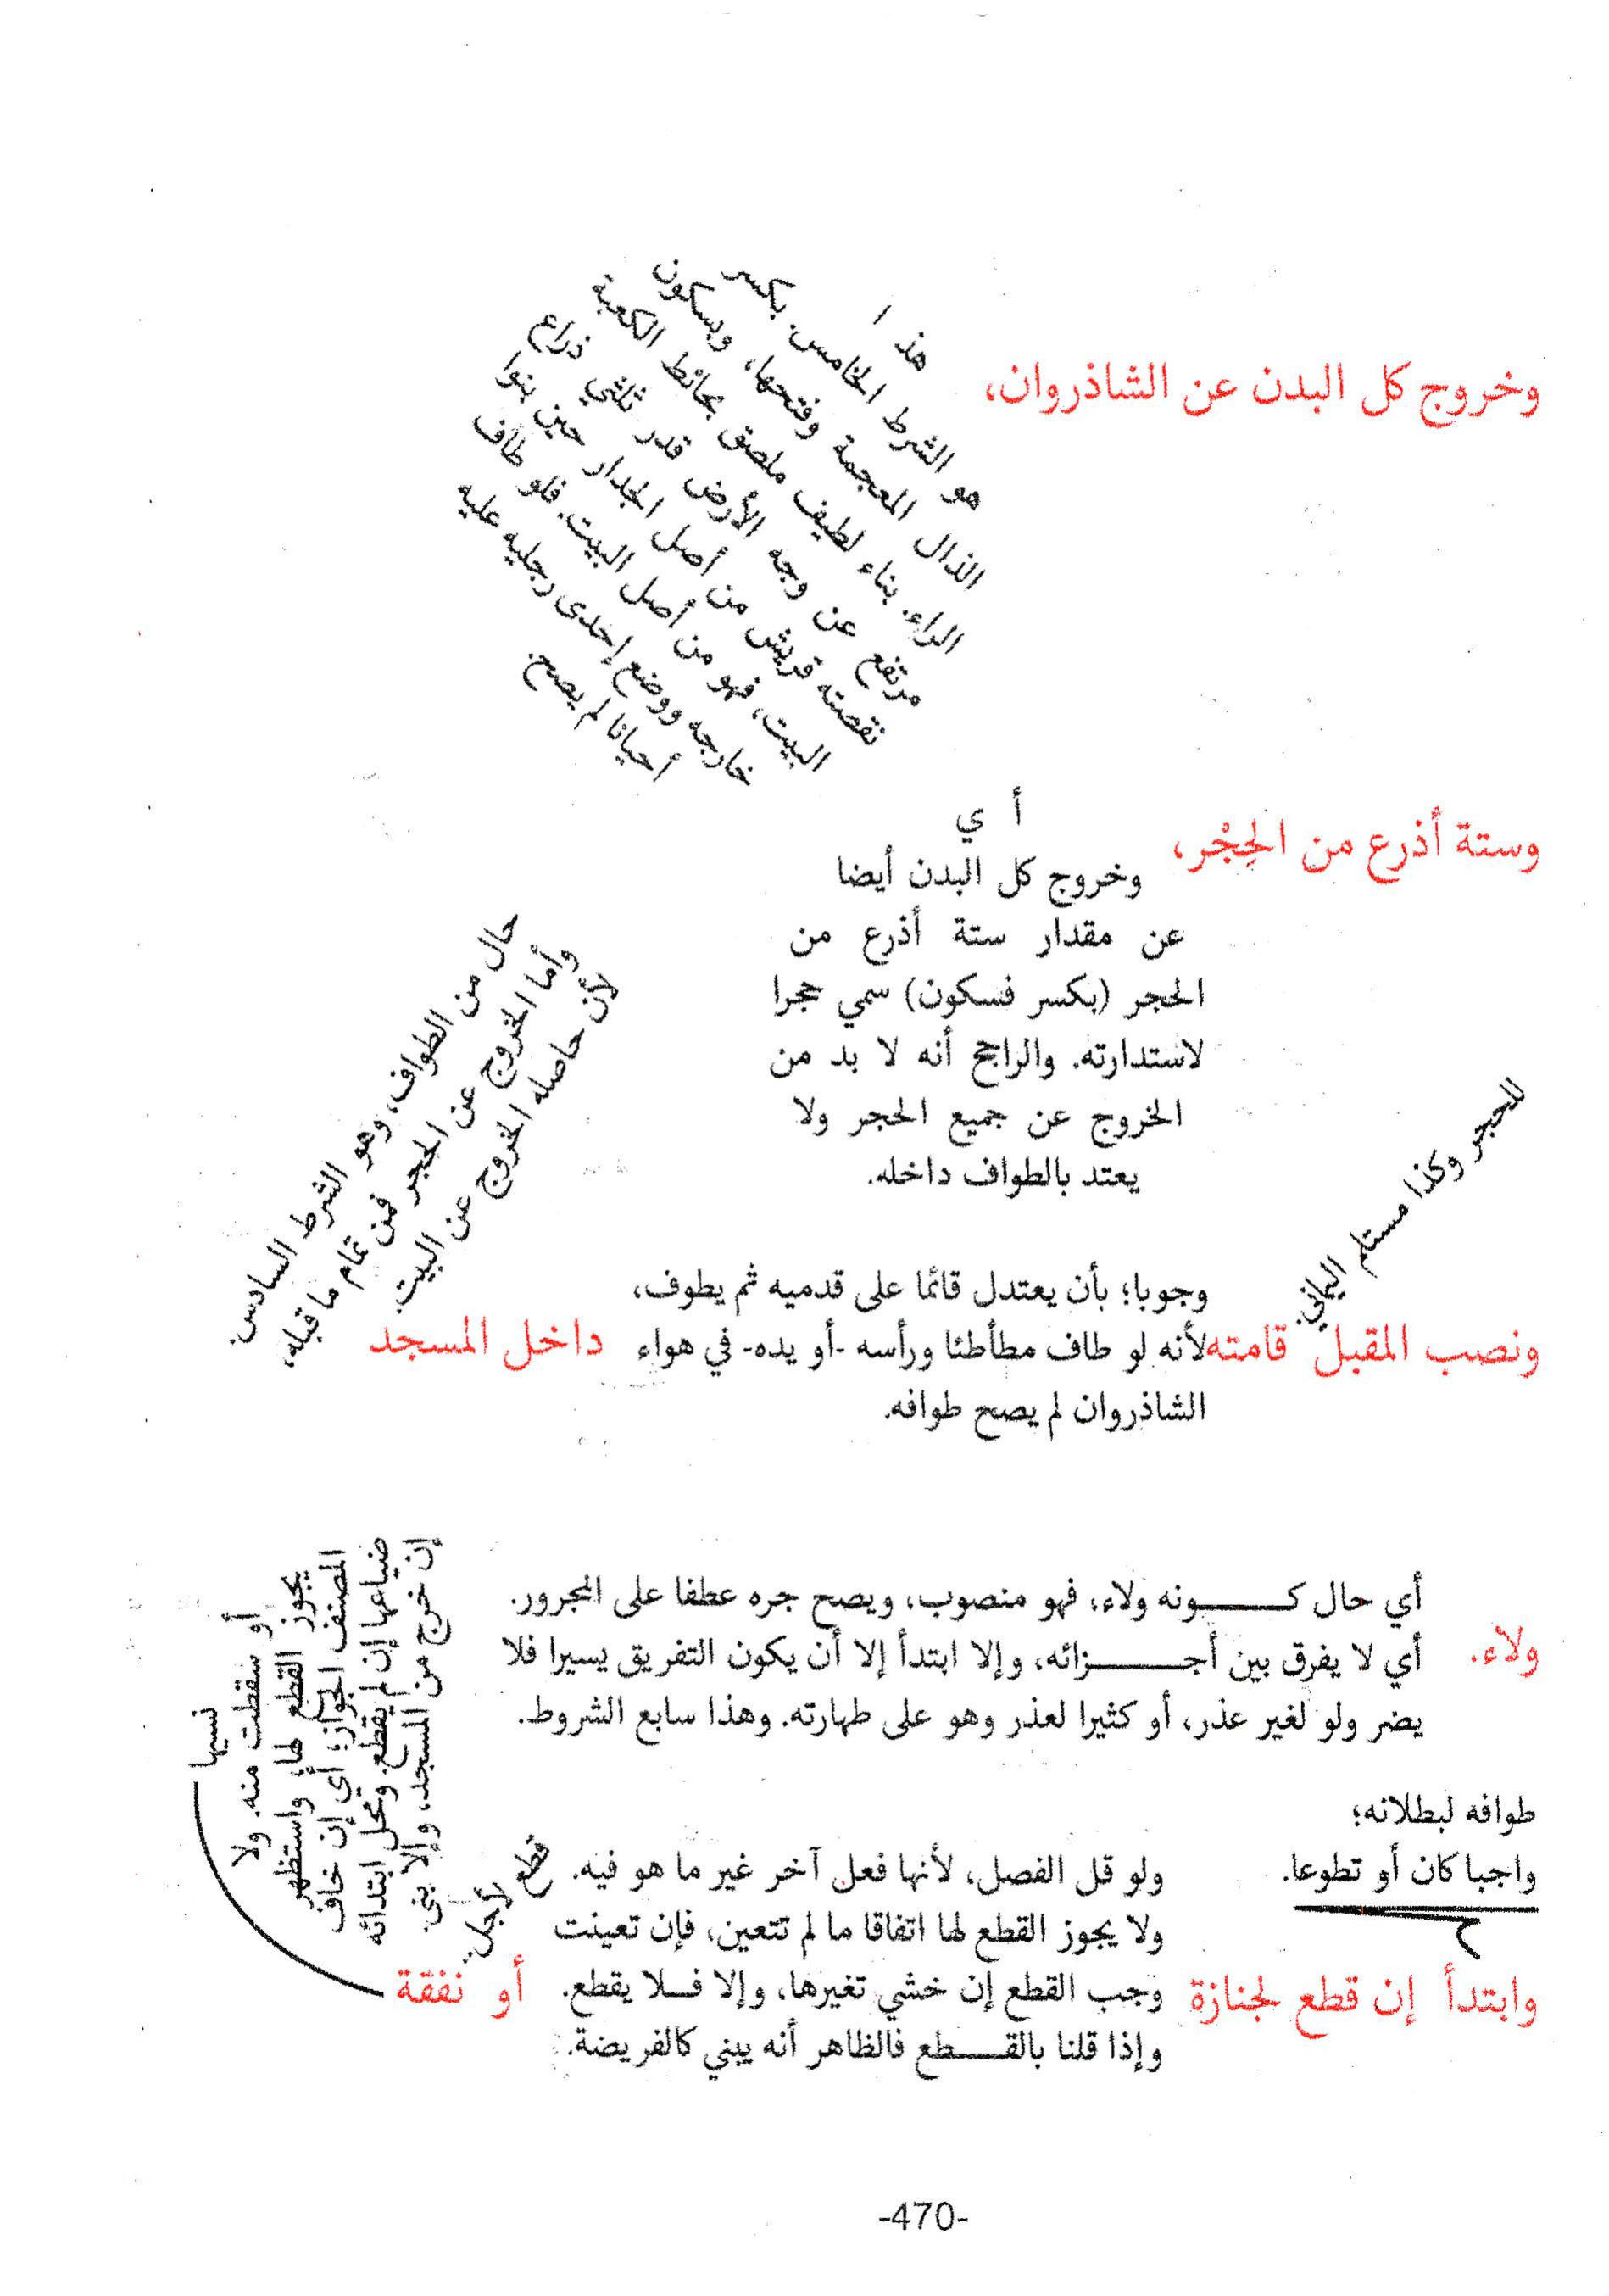 وخروج كل البدن عن الشاذروان،
هذ ا
هو الشرط الخامس. بكسر
الذال المعجمة وفتحها، وبسكون
الراء. بناء لطيف ملصق بحائط الكعبة
مرتفع عن وجه الأرض قدر ثلثي ذراع
نقصته قريش من أصل الجدار حين بنوا
البيت، فهو من أصل البيت. فلو طاف
خارجه ووضع إحدى رجليه عليه
أحيانا لم يصح.
وستة أذرع من الحِجْر،
أ ي
وخروج كل البدن أيضا
عن مقدار ستة أذرع من
الحجر (بكسر فسكون) سمي حجرا
لاستدارته. والراجح أنه لا بد من
الخروج عن جميع الحجر ولا
يعتد بالطواف داخله.
ونصب المقبل قامته
للحجر وكذا مستلم اليماني.
وجوبا؛ بأن يعتدل قائما على قدميه ثم يطوف،
لأنه لو طاف مطأطئا ورأسه -أو يده- في هواء
الشاذروان لم يصح طوافه.
داخل المسجد
حال من الطواف، وهو الشرط السادس.
وأما الخروج عن الحجر فمن تمام ما قبله،
لأن حاصله الخروج عن البيت.
ولاء.
أي حال كـــونه ولاء، فهو منصوب، ويصح جره عطفا على المجرور.
أي لا يفرق بين أجـــزائه، وإلا ابتدأ إلا أن يكون التفريق يسيرا فلا
يضر ولو لغير عذر، أو كثيرا لعذر وهو على طهارته. وهذا سابع الشروط.
طوافه لبطلانه؛
واجبا كان أو تطوعا.
وابتدأ إن قطع لجنازة
ولو قل الفصل، لأنها فعل آخر غير ما هو فيه.
ولا يجوز القطع لها اتفاقا ما لم تتعين، فإن تعينت
وجب القطع إن خشي تغيرها، وإلا فـلا يقطع.
وإذا قلنا بالقـــطع فالظاهر أنه يبني كالفريضة.
أو نفقة
قطع لأجل..
نسيها
أو سقطت منه. ولا
يجوز القطع لها، واستظهر
المصنف الجواز؛ أي إن خاف
ضياعها إن لم يقطع. ومحل ابتدائه
إن خرج من المسجد، وإلا بنى.
-470-